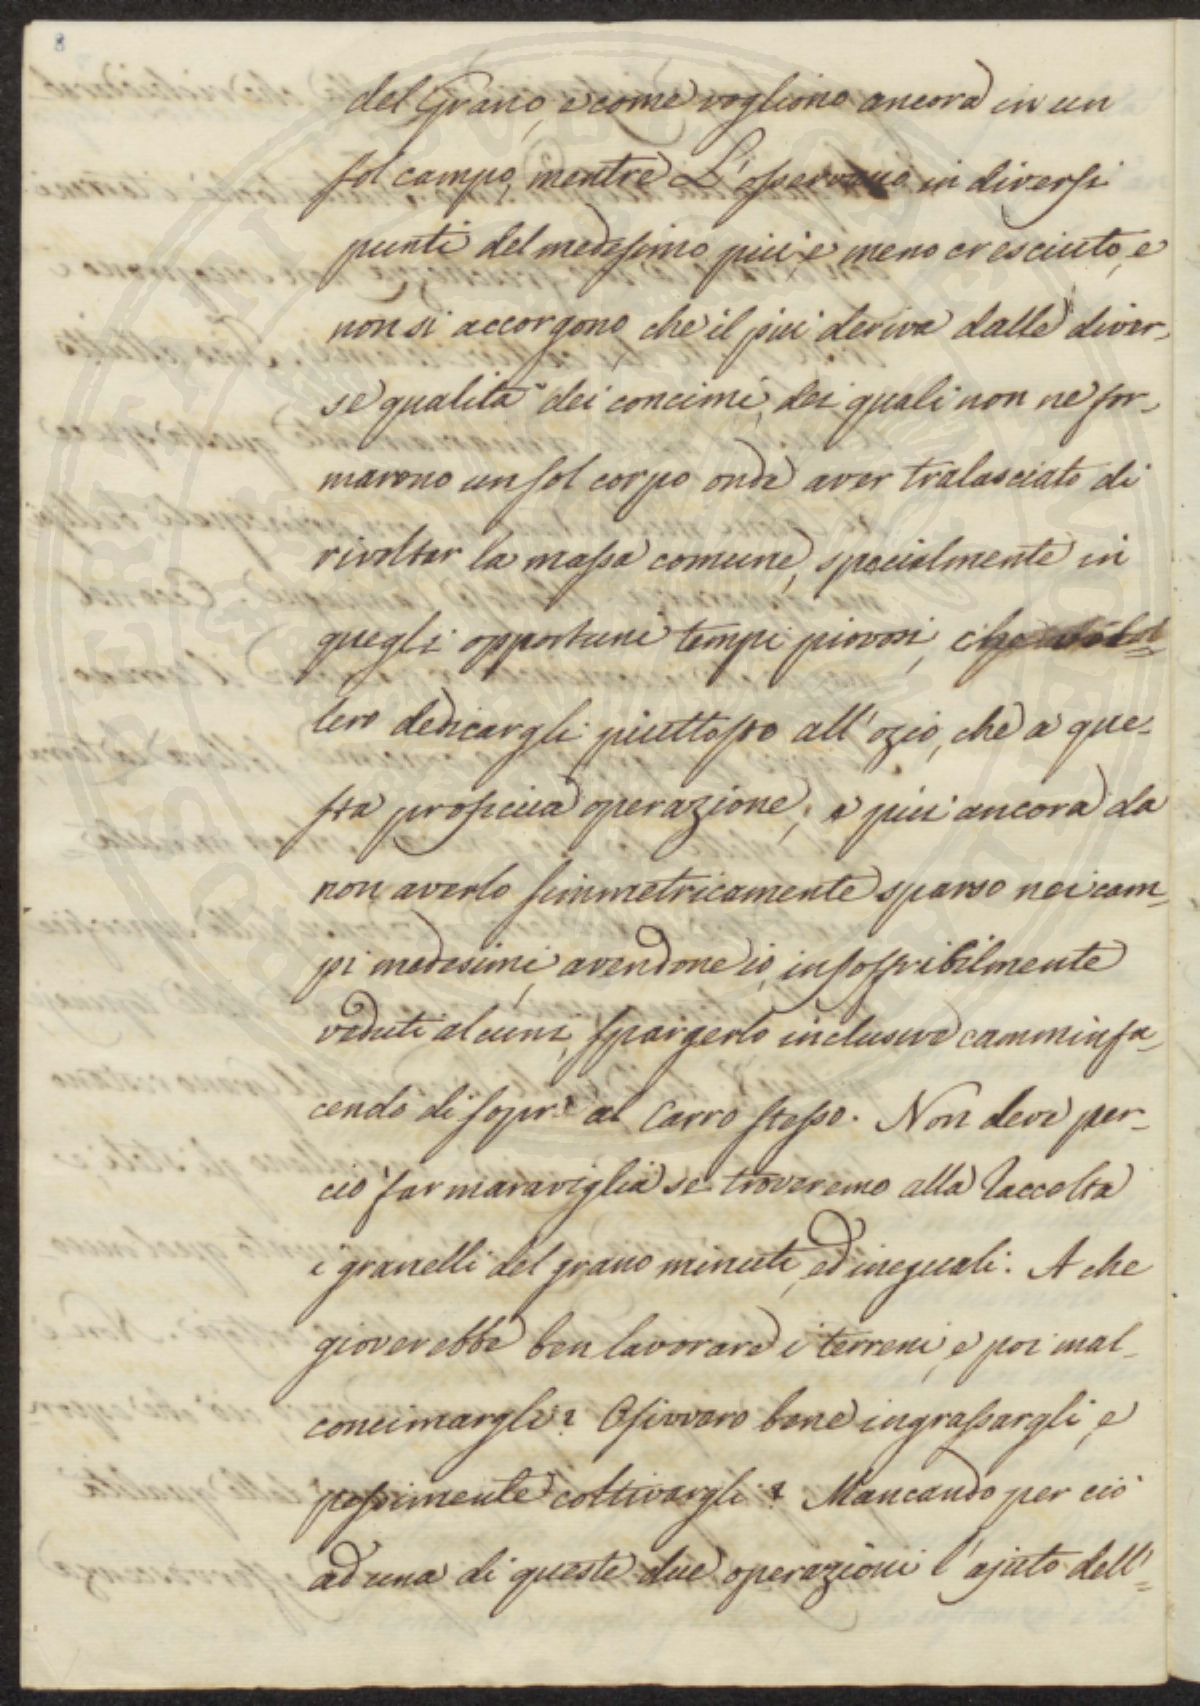 8
del Grano, e come vogliono ancora in un
sol campo, mentre L'osservano in diversi
punti del medesimo più, e meno cresciuto, e
non si accorgono, che il più deriva dalle diver-
se qualità dei concimi, dei quali non ne for-
marono un sol corpo onde aver tralasciato di
rivoltar la massa comune, specialmente in
quegli opportuni tempi piovosi, che
lero dedicargli piuttosto all'ozio, che a que-
sta proficua operazione; e più ancora da
non averlo simmetricamente sparso nei cam-
pi medesimi, avendone io, insoffribilmente
veduti alcuni, spargerlo inclusive cammin fa-
cendo di sopra al Carro stesso. Non deve per-
ciò far maraviglia se troveremo alla Raccolta
i granelli del grano minuti, ed ineguali. A che
gioverebbe ben lavorare i terreni, e poi mal
concimargli? Ossivvero bene ingrassargli, e
pessimente coltivargli? Mancando per ciò
ad una di queste due operazioni l'ajuto dell'=